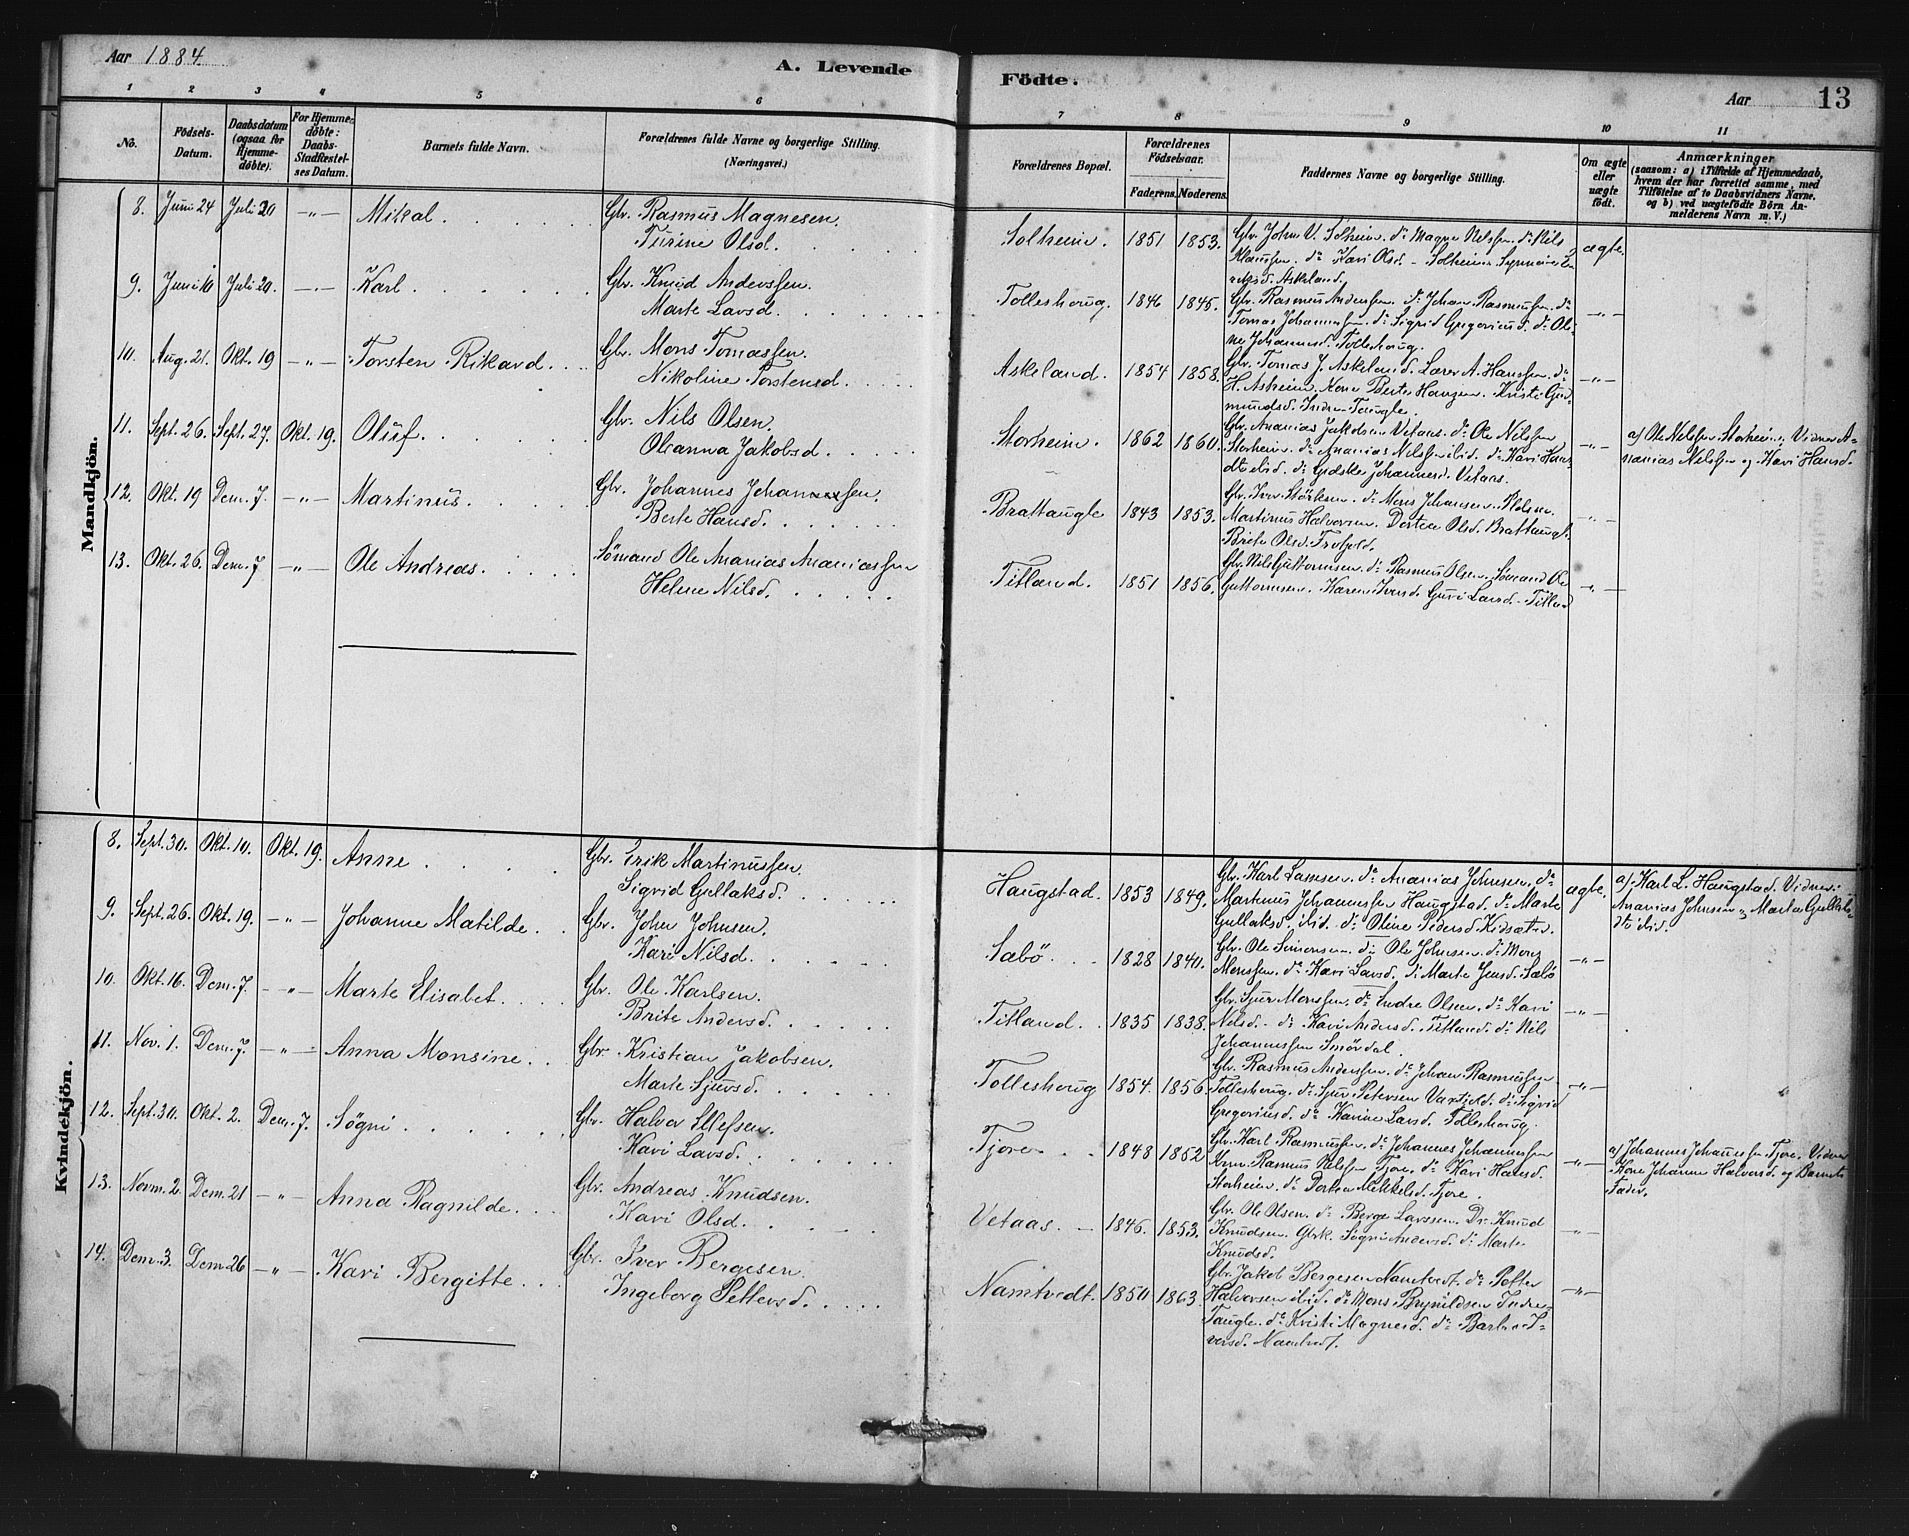 Aar 1884.
A. Levende Födte.
Aar 13
1 2 3 4 5 6 7 8 9 10 11
No.
Födsels-Datum.
Daabsdatum (ogsaa for Hjemmedöbte).
For Hjemmedöbte: Daabs-Stadfæstelses Datum.
Barnets fulde Navn.
Forældrenes fulde Navne og borgerlige Stilling. (Næringsvei.)
Forældrenes Bopæl.
Forældrenes Födselsaar.
Faderens. Moderens.
Faddernes Navne og borgerlige Stilling.
Om ægte eller uægte födt.
Anmærkninger (saasom: a) i Tilfælde af Hjemmedaab, hvem der har forrettet samme, med Tilföielse af to Daabsvidners Navne. og b) ved uægtefödte Börn Anmelderens Navn m. V.)
Mandkjön.
8. Juni 24 Juli 20 -„- Mikal. Gbr. Rasmus Magnesen. Turine Olsd. Solheim. 1851 1853. Gbr. John V. Solheim. do Magne Nilssen. do Nils Klaussen. do Kari Olsd. Solheim. ægte.
9. Juni 10 Juli 20. -„- Karl. Gbr. Knud Anderssen. Marte Larsd. Tolleshoug. 1846 1845. Gbr. Rasmus Anderssen. do Johan Rasmussen. do Tomas Johannessen. do Sigrid Gregoriusd. do Oline Johannesd. Tolleshoug. -„-
10. Aug. 21. Okt. 19 -„- Torsten Rikard. Gbr. Mons Tomassen. Nikoline Torstensd. Askeland. 1854 1858. Gbr. Tomas J. Askeland. Lærer A. Hanssen. do H. Asheim. Kone Berte Hansen. Kristi Gudmundsd. Indre-Taugle. -„-
11. Sept. 26. Sept. 27. Okt. 19. Oluf. Gbr. Nils Olsen. Oleanna Jakobsd. Storheim. 1862 1860. Gbr. Ananias Jakobsen Vetaas. do Ole Nilssen Storheim. do Ananias Nilssen ibid. do Kari Hansdtr ibid. do Gjdske Johannesd. Vetaas. -„- a) Ole Nilssen Storheim; Vidner Ananias Nilssen og Kari Hansd.
12. Okt. 19 Dem. 7. -„- Martinus. Gbr. Johannes Johannessen. Berte Hansd. Brattaugle 1843 1853. Gbr. Iver Störksen. do Mons Johansen. Martinus Halvorsen. Dortea Olsd. Brattaugl. Brite Olsd. -„-
13. Okt. 26. Dem. 7 -„- Ole Andreas. Sömand Ole Ananias Ananiassen Helene Nilsd. Titland. 1851 1856. Gbr. Nils Guttormsen. do Rasmus Olsen. Sömand Ole Guttormsen. Karen Iversd. Guri Larsd. Titland -„-
Kvindekjön.
8. Sept. 30. Okt. 10. Okt. 19. Anne. Gbr. Erik Martinussen. Sigrid Gullaksd. Haugstad. 1853 1849. Gbr. Karl Larssen. do Ananias Johnsen. do Martinus Johannessen Haugstad. do Marte Gullaksd. ibid. do Oline Pedersd. Kidsæter. ægte. a) Karl L. Haugstad. Vidner: Ananias Johnsen og Marta Gullaksdtr ibid.
9. Sept. 26. Okt. 19. -„- Johanne Matilde. Gbr. John Johnsen. Kari Nilsd. Sæbö. 1828 1840. Gbr. Ole Simonsen. do Ole Johnsen. do Mons Monssen. do Kari Larsd. do Marte Jensd. Sæbö -„-
10. Okt. 16. Dem. 7. -„- Marte Elisabet. Gbr. Ole Karlsen. Brite Andersd. Titland. 1835 1838. Gbr. Sjur Monssen. do Endre Olsen. do Kari Nilsd. do Kari Andersd. Titland. do Nils Johannessen Smördal. -„-
11. Nov. 1. Dem. 7. -„- Anna Monsine. Gbr. Kristian Jakobsen. Marte Sjursd. Tolleshoug 1854. 1856. Gbr. Rasmus Anderssen. do Johan Rasmussen Tolleshoug. do Sjur Petersen. do Sigrid Gregoriusd. do Karine Larsd. Tolleshoug. -„-
12. Sept. 30. Okt. 2. Dem. 7. Sögni. Gbr. Halvor Ellefsen. Kari Larsd. Tjore. 1848 1852 Gbr. Karl Rasmussen. do Johannes Johannessen Rasmus Nilssen Tjore. do Kari Hansd. Storheim. do Dortea Mikkelsd. Tjore. -„- a) Johannes Johannessen Tjore. Vidner Kone Johanne Halvorsd. og Barnets Fader.
13. Novm. 2. Dem. 21 -„- Anna Ragnilde. Gbr. Andreas Knudsen. Kari Olsd. Vetaas. 1846. 1853. Gbr. Ole Olsen. do Berge Larssen. Dr. Knud Knudsen. Gbrk. Sögni Andersd. do Marte Knudsd. -„-
14. Dem. 3. Dem. 26 -„- Kari Bergitte. Gbr. Iver Bergesen. Ingeborg Pettersd. Namtvedt. 1850 1863. Gbr. Jakob Bergesen Namtvedt. do Petter Halvorsen ibid. do Mons Brynildsen Indre-Taugle. do Kristi Magnesd. do Barbro Iversd. Namtvedt. -„-